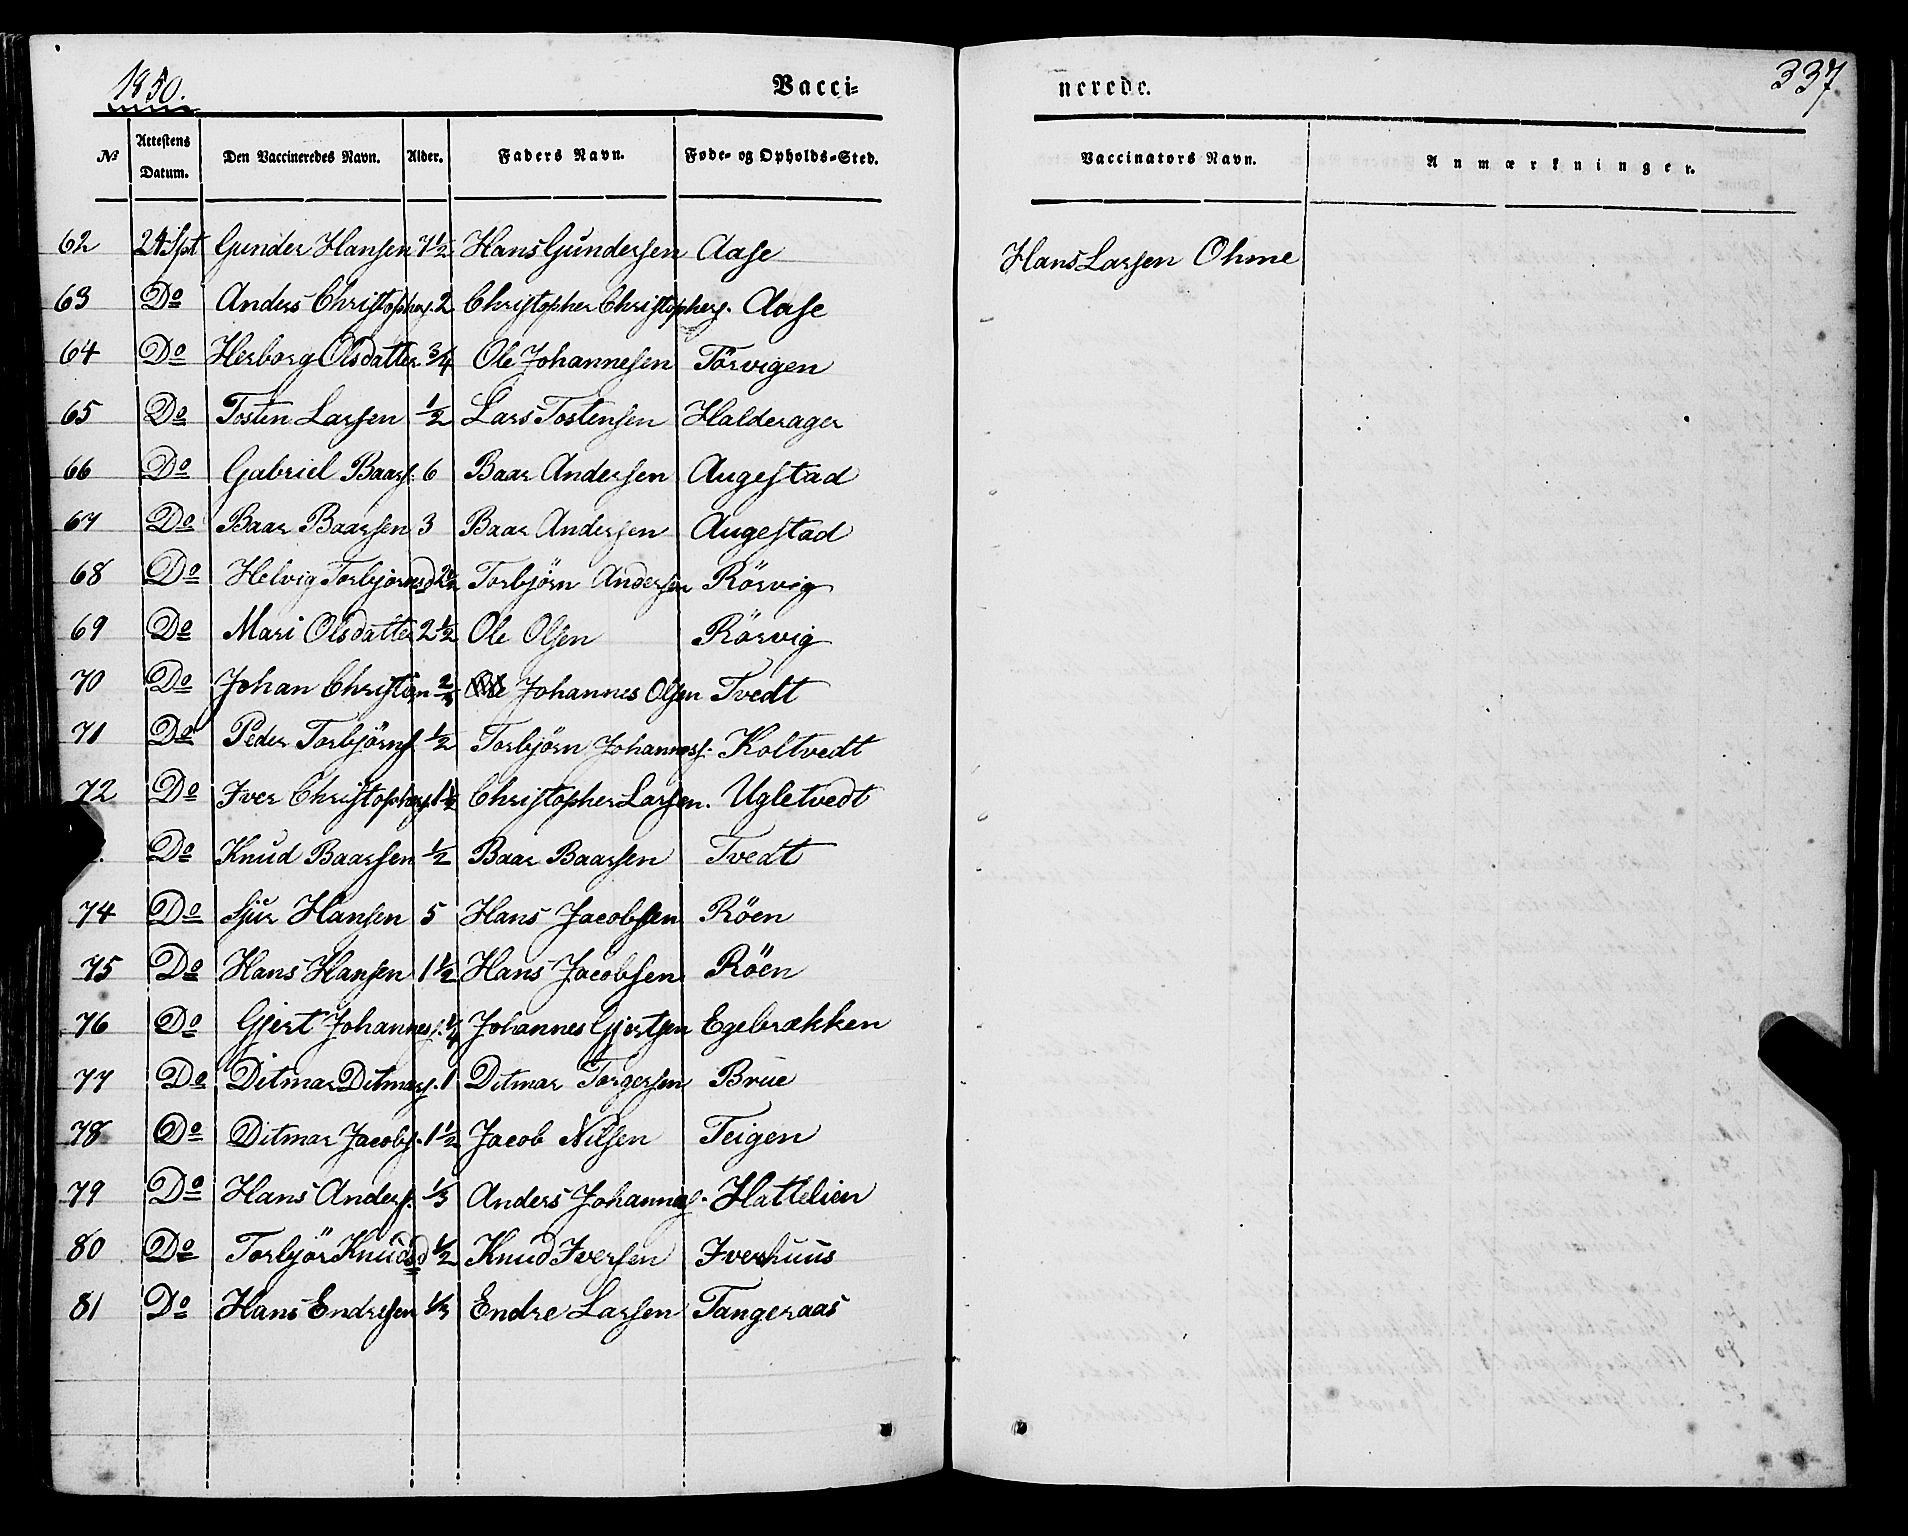 1850. Vacci- nerede. 337
№ Attestens Datum. Den Vaccineredes Navn. Alder. Faders Navn. Føde- og Opholds-Sted. Vaccinators Navn. Anmærkninger.
62 24 Spt Gunder Hansen 7½ Hans Gundersen Aase Hans Larsen Ohme
63 Do Anders Christophers. 2 Christopher Christophers. Aase
64 Do Herborg Olsdatter ¾ Ole Johannesen Törvigen
65 Do Tosten Larsen ½ Lars Tostensen Halderager
66 Do Gabriel Baars. 6 Baar Andersen Augestad
67 Do Baar Baarsen 3 Baar Andersen Augestad
68 Do Helvig Torbjörnsd 2½ Torbjörn Andersen Rörvig
69 Do Mari Olsdatter 2½ Ole Olsen Rörvig
70 Do Johan Christian Johannes Olsen Tvedt
71 Do Peder Torbjörns. ½ Torbjörn Johanness. Koltvedt
72 Do Iver Christophers. 1½ Christopher Larsen. Ugletvedt
Do Knud Baarsen ½ Baar Baarsen Tvedt
74 Do Sjur Hansen 5 Hans Jacobsen Röen
75 Do Hans Hansen 1½ Hans Jacobsen Röen
76 Do Gjert Johannes. ¼ Johannes Gjertsen Egebrækken
77 Do Ditmar Ditmars. 1 Ditmar Torgersen Brue
78 Do Ditmar Jacobs. 1½ Jacob Nilsen Teigen
79 Do Hans Anders. ⅓ Anders Johannes. Hattelien
80 Do Torbjör Knudsd ½ Knud Iversen Iverhuus
81 Do Hans Endresen ⅓ Endre Larsen Tangeraas